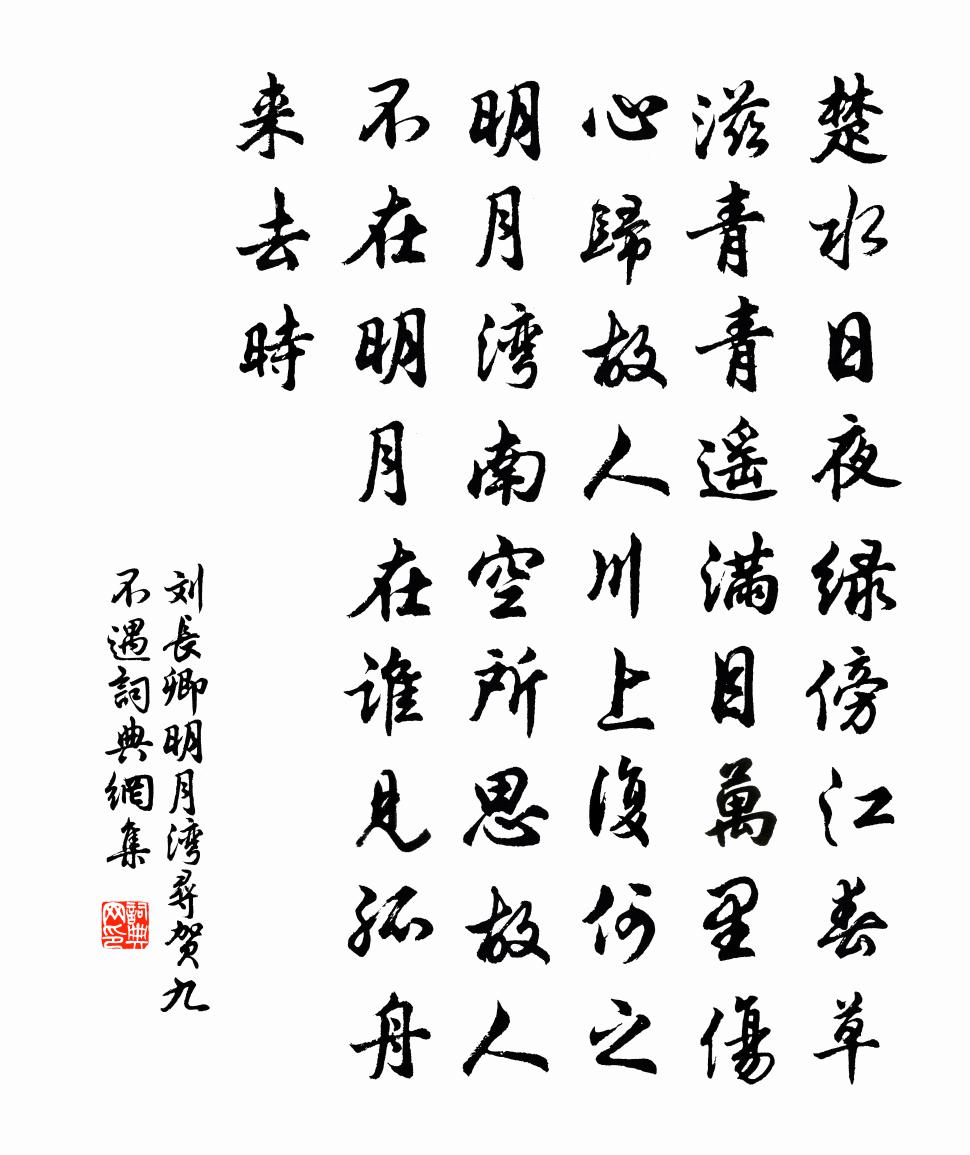 楚水日夜绿傍江春草
滋青青遥满目萬里傷
心歸故人川上復何之
明月湾南空所思故人
不在明月在谁見孤舟
来去時
刘長卿明月湾尋贺九
不遇詞典網集
詞典网印